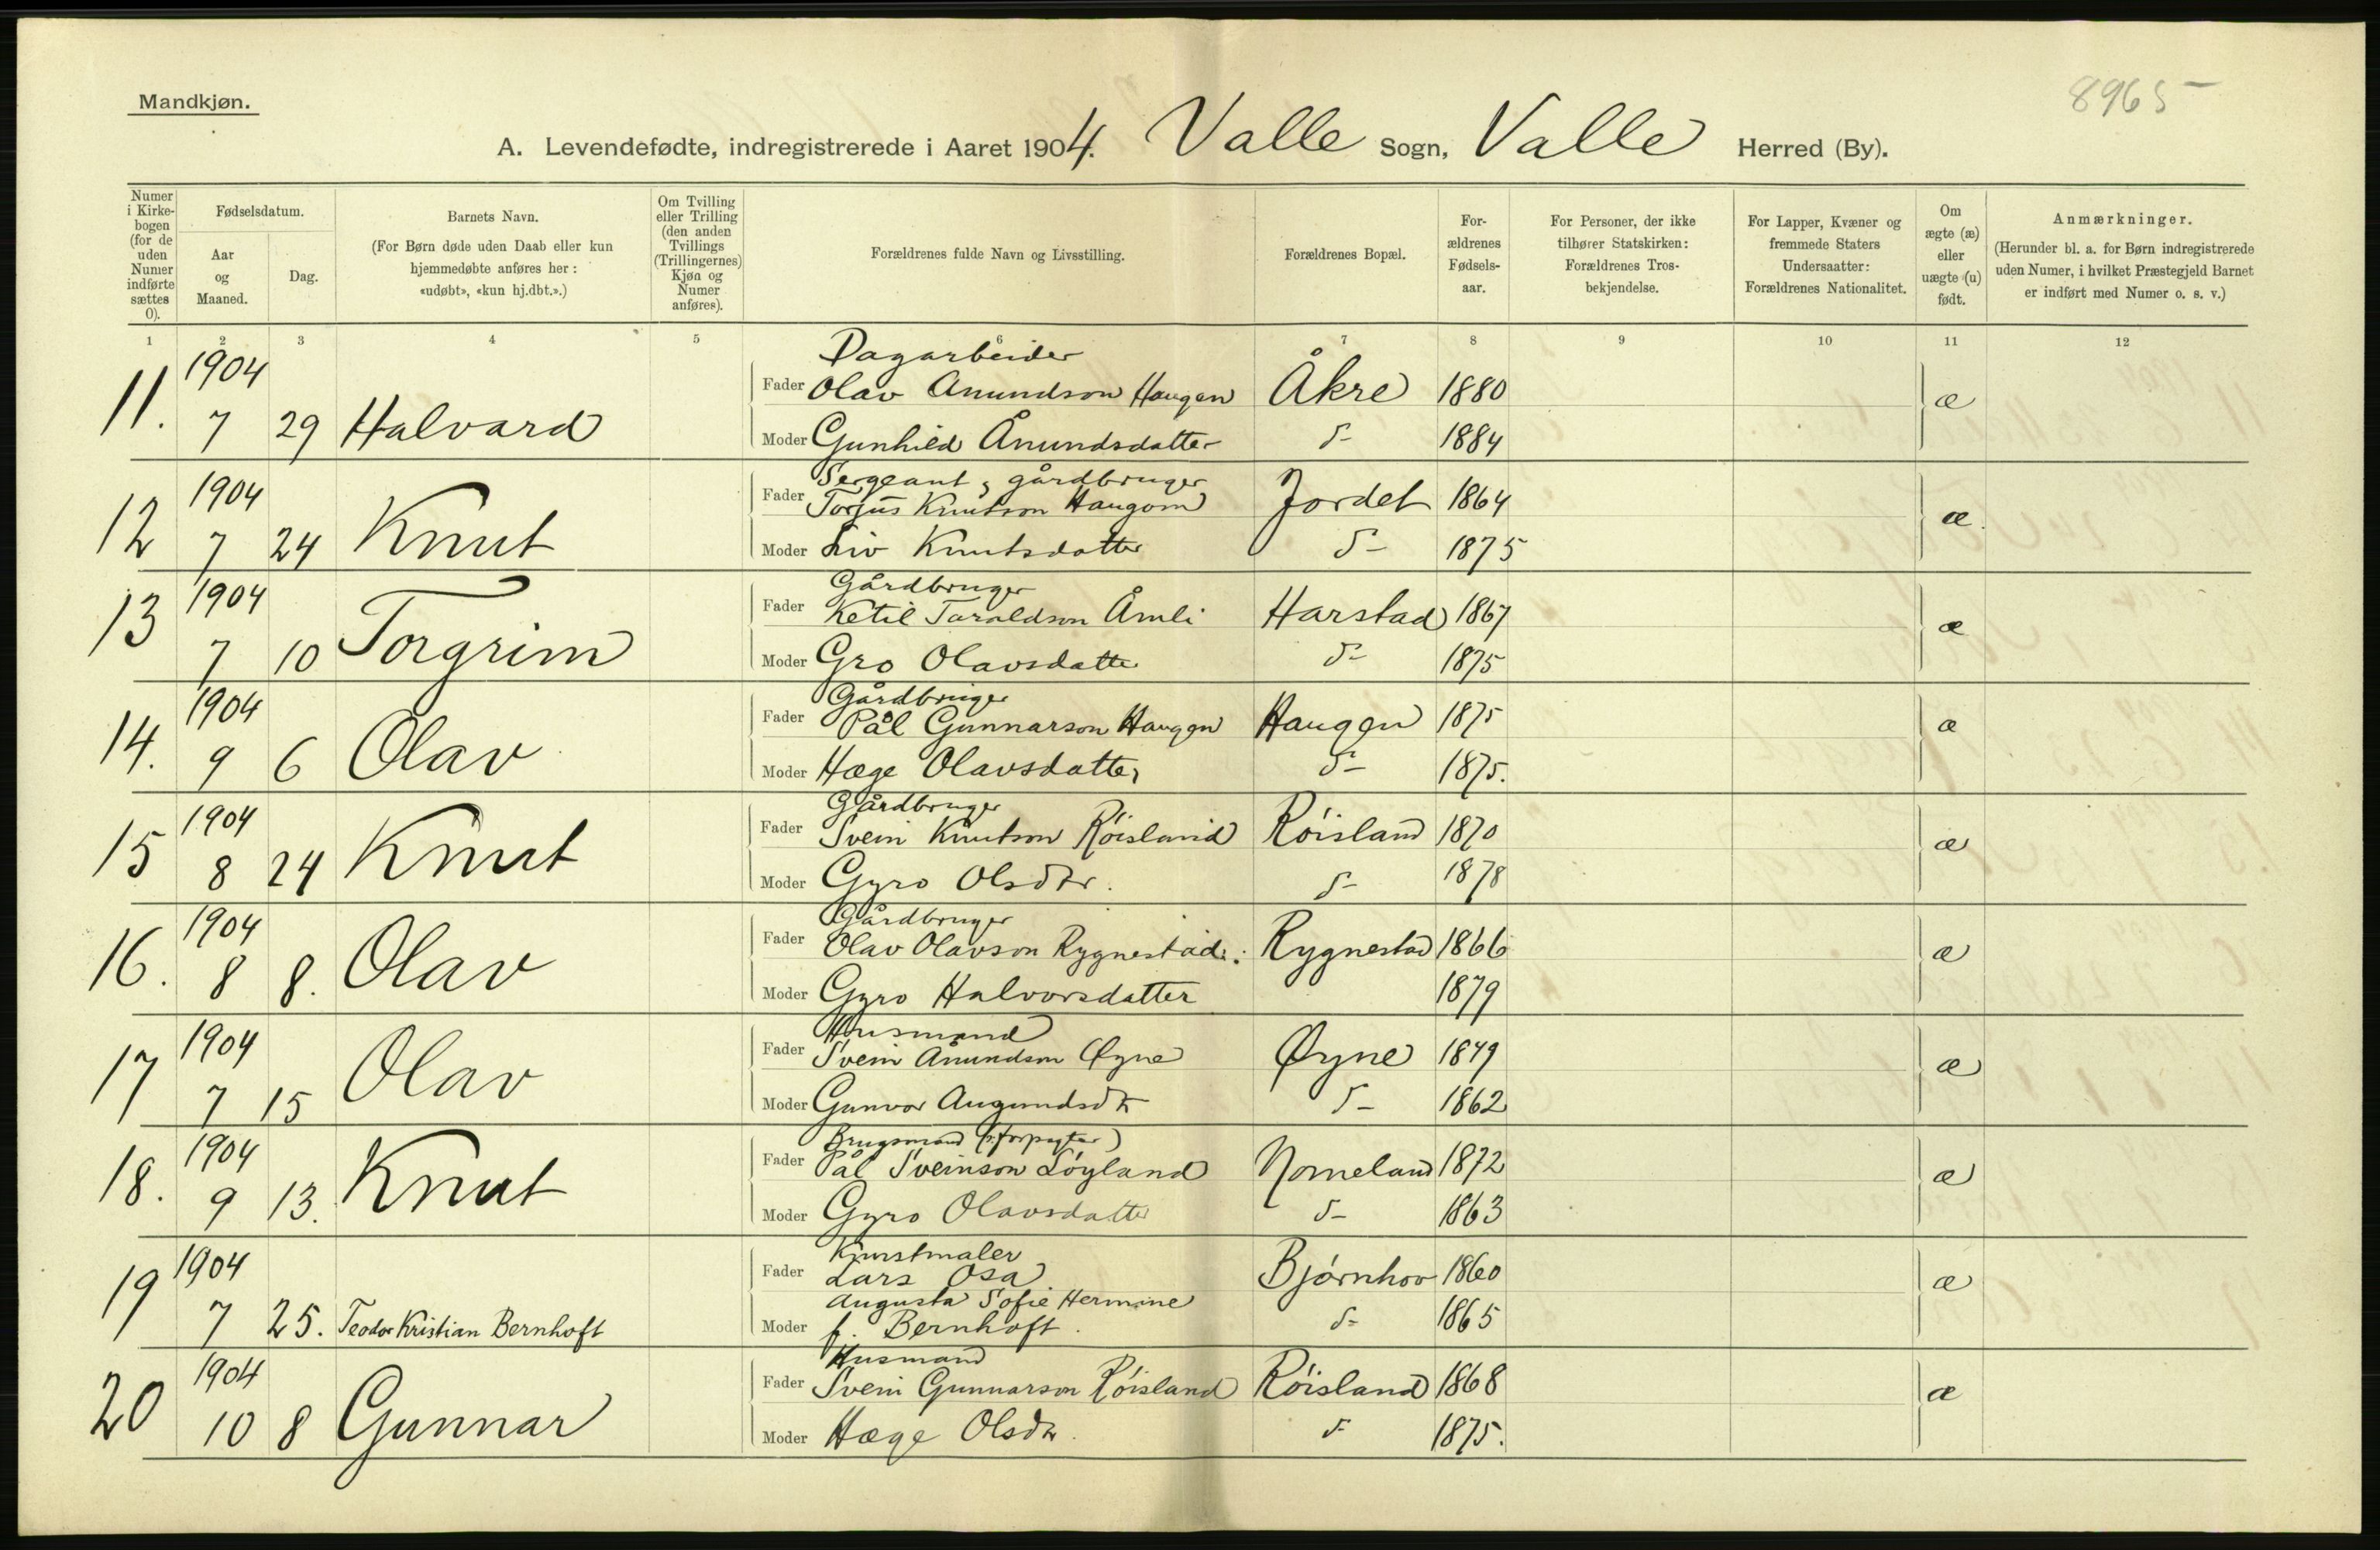 8965
Mandkjøn.
A. Levendefødte, indregistrerede i Aaret 1904. Valle Sogn, Valle Herred (By).
Numer i Kirke-bogen (for de uden Numer indførte sættes 0).
Fødselsdatum.
Aar og Maaned.
Dag.
Barnets Navn.
(For Børn døde uden Daab eller kun hjemmedøbte anføres her: «udøbt», «kun hj.dbt.».)
Om Tvilling eller Trilling (den anden Tvillings (Trillingernes) Kjøn og Numer anføres).
Forældrenes fulde Navn og Livsstilling.
Forældrenes Bopæl.
For-ældrenes Fødsels-aar.
For Personer, der ikke tilhører Statskirken: Forældrenes Tros-bekjendelse.
For Lapper, Kvæner og fremmede Staters Undersaatter: Forældrenes Nationalitet.
Om ægte (æ) eller uægte (u) født.
Anmærkninger.
(Herunder bl. a. for Børn indregistrerede uden Numer, i hvilket Præstegjeld Barnet er indført med Numer o. s. v.)
1 2 3 4 5 6 7 8 9 10 11 12
Dagarbeider
11. 1904 Fader Olav Anundson Haugen Åkre 1880 æ
7 29 Halvard Moder Gunhild Ånundsdatter d- 1884
Sergeant, gårdbruger
12 1904 Fader Torjus Knutson Haugom Jordet 1864 æ
7 24 Knut Moder Liv Knutsdatter d- 1875
Gårdbruger
13 1904 Fader Ketil Taraldson Åmli Harstad 1867 æ
7 10 Torgrim Moder Gro Olavsdatter d- 1875
Gårdbruger
14. 1904 Fader Pål Gunnarson Haugen Haugen 1875 æ
9 6 Olav Moder Hæge Olavsdatter d- 1875.
Gårdbruger
15 1904 Fader Svein Knutson Røisland Røisland 1870 æ
8 24 Knut Moder Gyro Olsdtr. d- 1878
Gårdbruger
16. 1904 Fader Olav Olavson Rygnestad. Rygnestad 1866 æ
8 8. Olav Moder Gyro Halvorsdatter 1879
Husmand
17 1904 Fader Svein Ånundson Øyne Øyne 1849 æ
7 15 Olav Moder Gunvor Augundsdtr d- 1862
Brugsmand (forpagter)
18. 1904 Fader Pål Sveinson Løyland Nomeland 1872 æ
9 13. Knut Moder Gyro Olavsdatter d- 1863
Kunstmaler
19 1904 Fader Lars Osa Bjørnhov 1860 æ
Augusta Sofie Hermine
7 25. Teodor Kristian Bernhoft Moder f. Bernhoft. d- 1865
Husmand
20 1904 Fader Svein Gunnarson Røisland Røisland 1868 æ
10 8 Gunnar Moder Hæge Olsdtr. d- 1875.